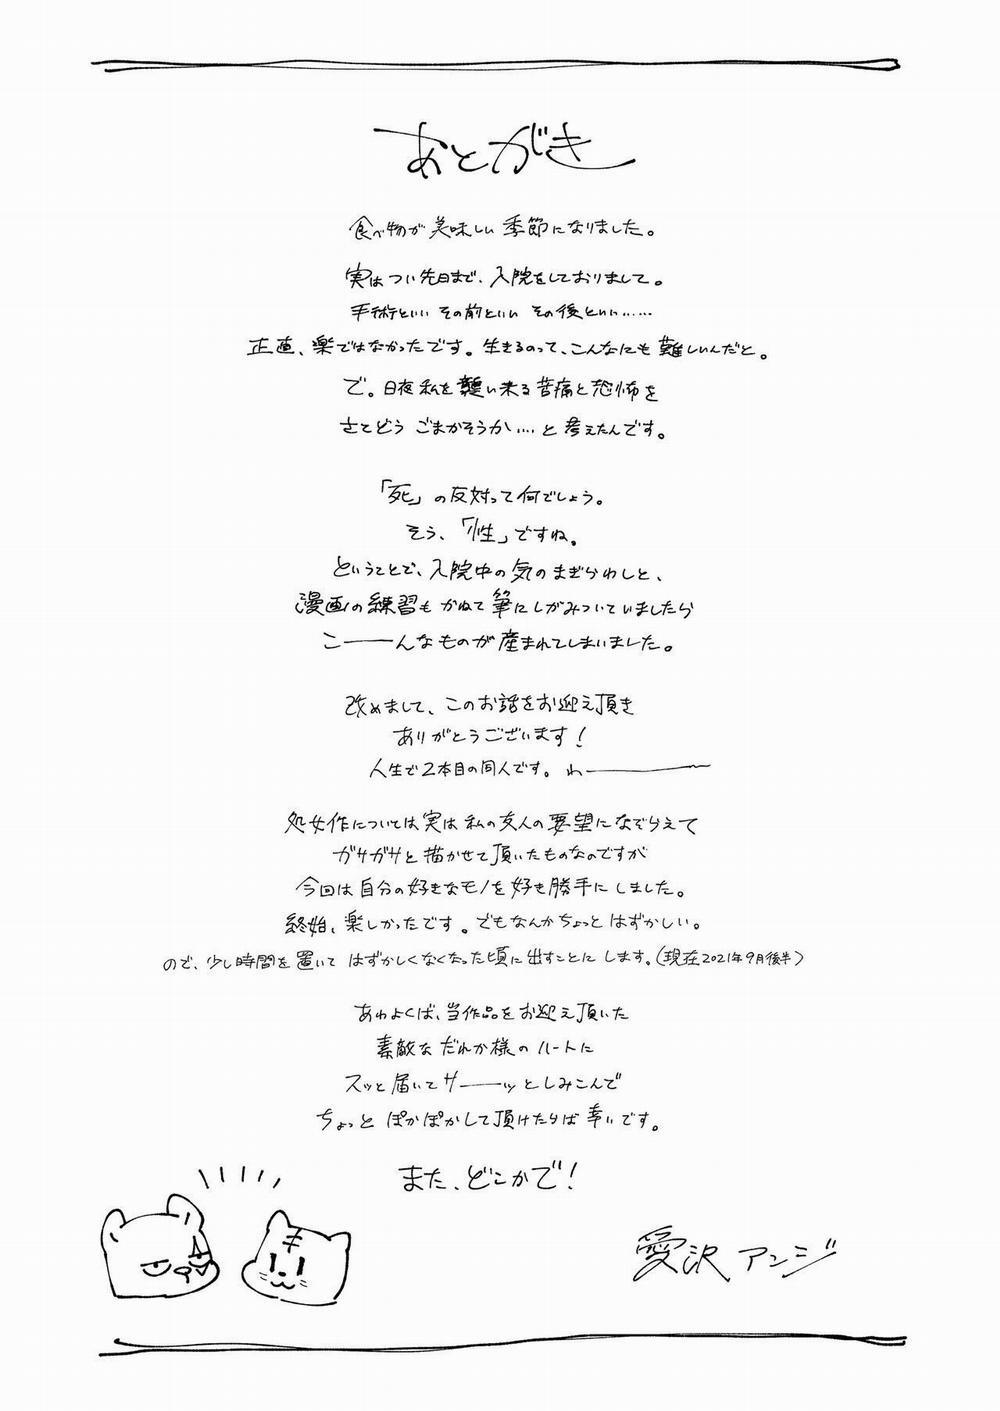 あとがき
食べ物が美味しい季節になりました。
実はつい先日まで、入院をしておりまして。
手術といい その前といい その後といい……
正直、楽ではなかったです。生きるのって、こんなにも難しいんだと。
で。日夜私を襲い来る苦痛と恐怖を
さてどう ごまかそうか…と 考えたんです。
「死」の反対って何でしょう。
そう、「性」ですね。
ということで、入院中の気のまぎらわしと、
漫画の練習も かねて 筆にしがみついていましたら
こーーんなものが産まれてしまいました。
改めまして、このお話をお迎え頂き
ありがとうございます!
人生で2本目の同人です。わーーー
処女作については実は私の友人の要望になぞらえて
ガサガサと描かせて頂いたものなのですが
今回は自分の好きなモノを好き勝手にしました。
終始、楽しかったです。でもなんかちょっと はずかしい。
ので、少し時間を置いて はずかしくなくなった頃に出すことに します。(現在2021年9月後半)
あわよくば、当作品をお迎え頂いた
素敵な だれか様の ハートに
スッと届いて サーーッとしみこんで
ちょっと ぽかぽかして頂けたりば 幸いです。
また、どこかで!
愛沢 アンジ